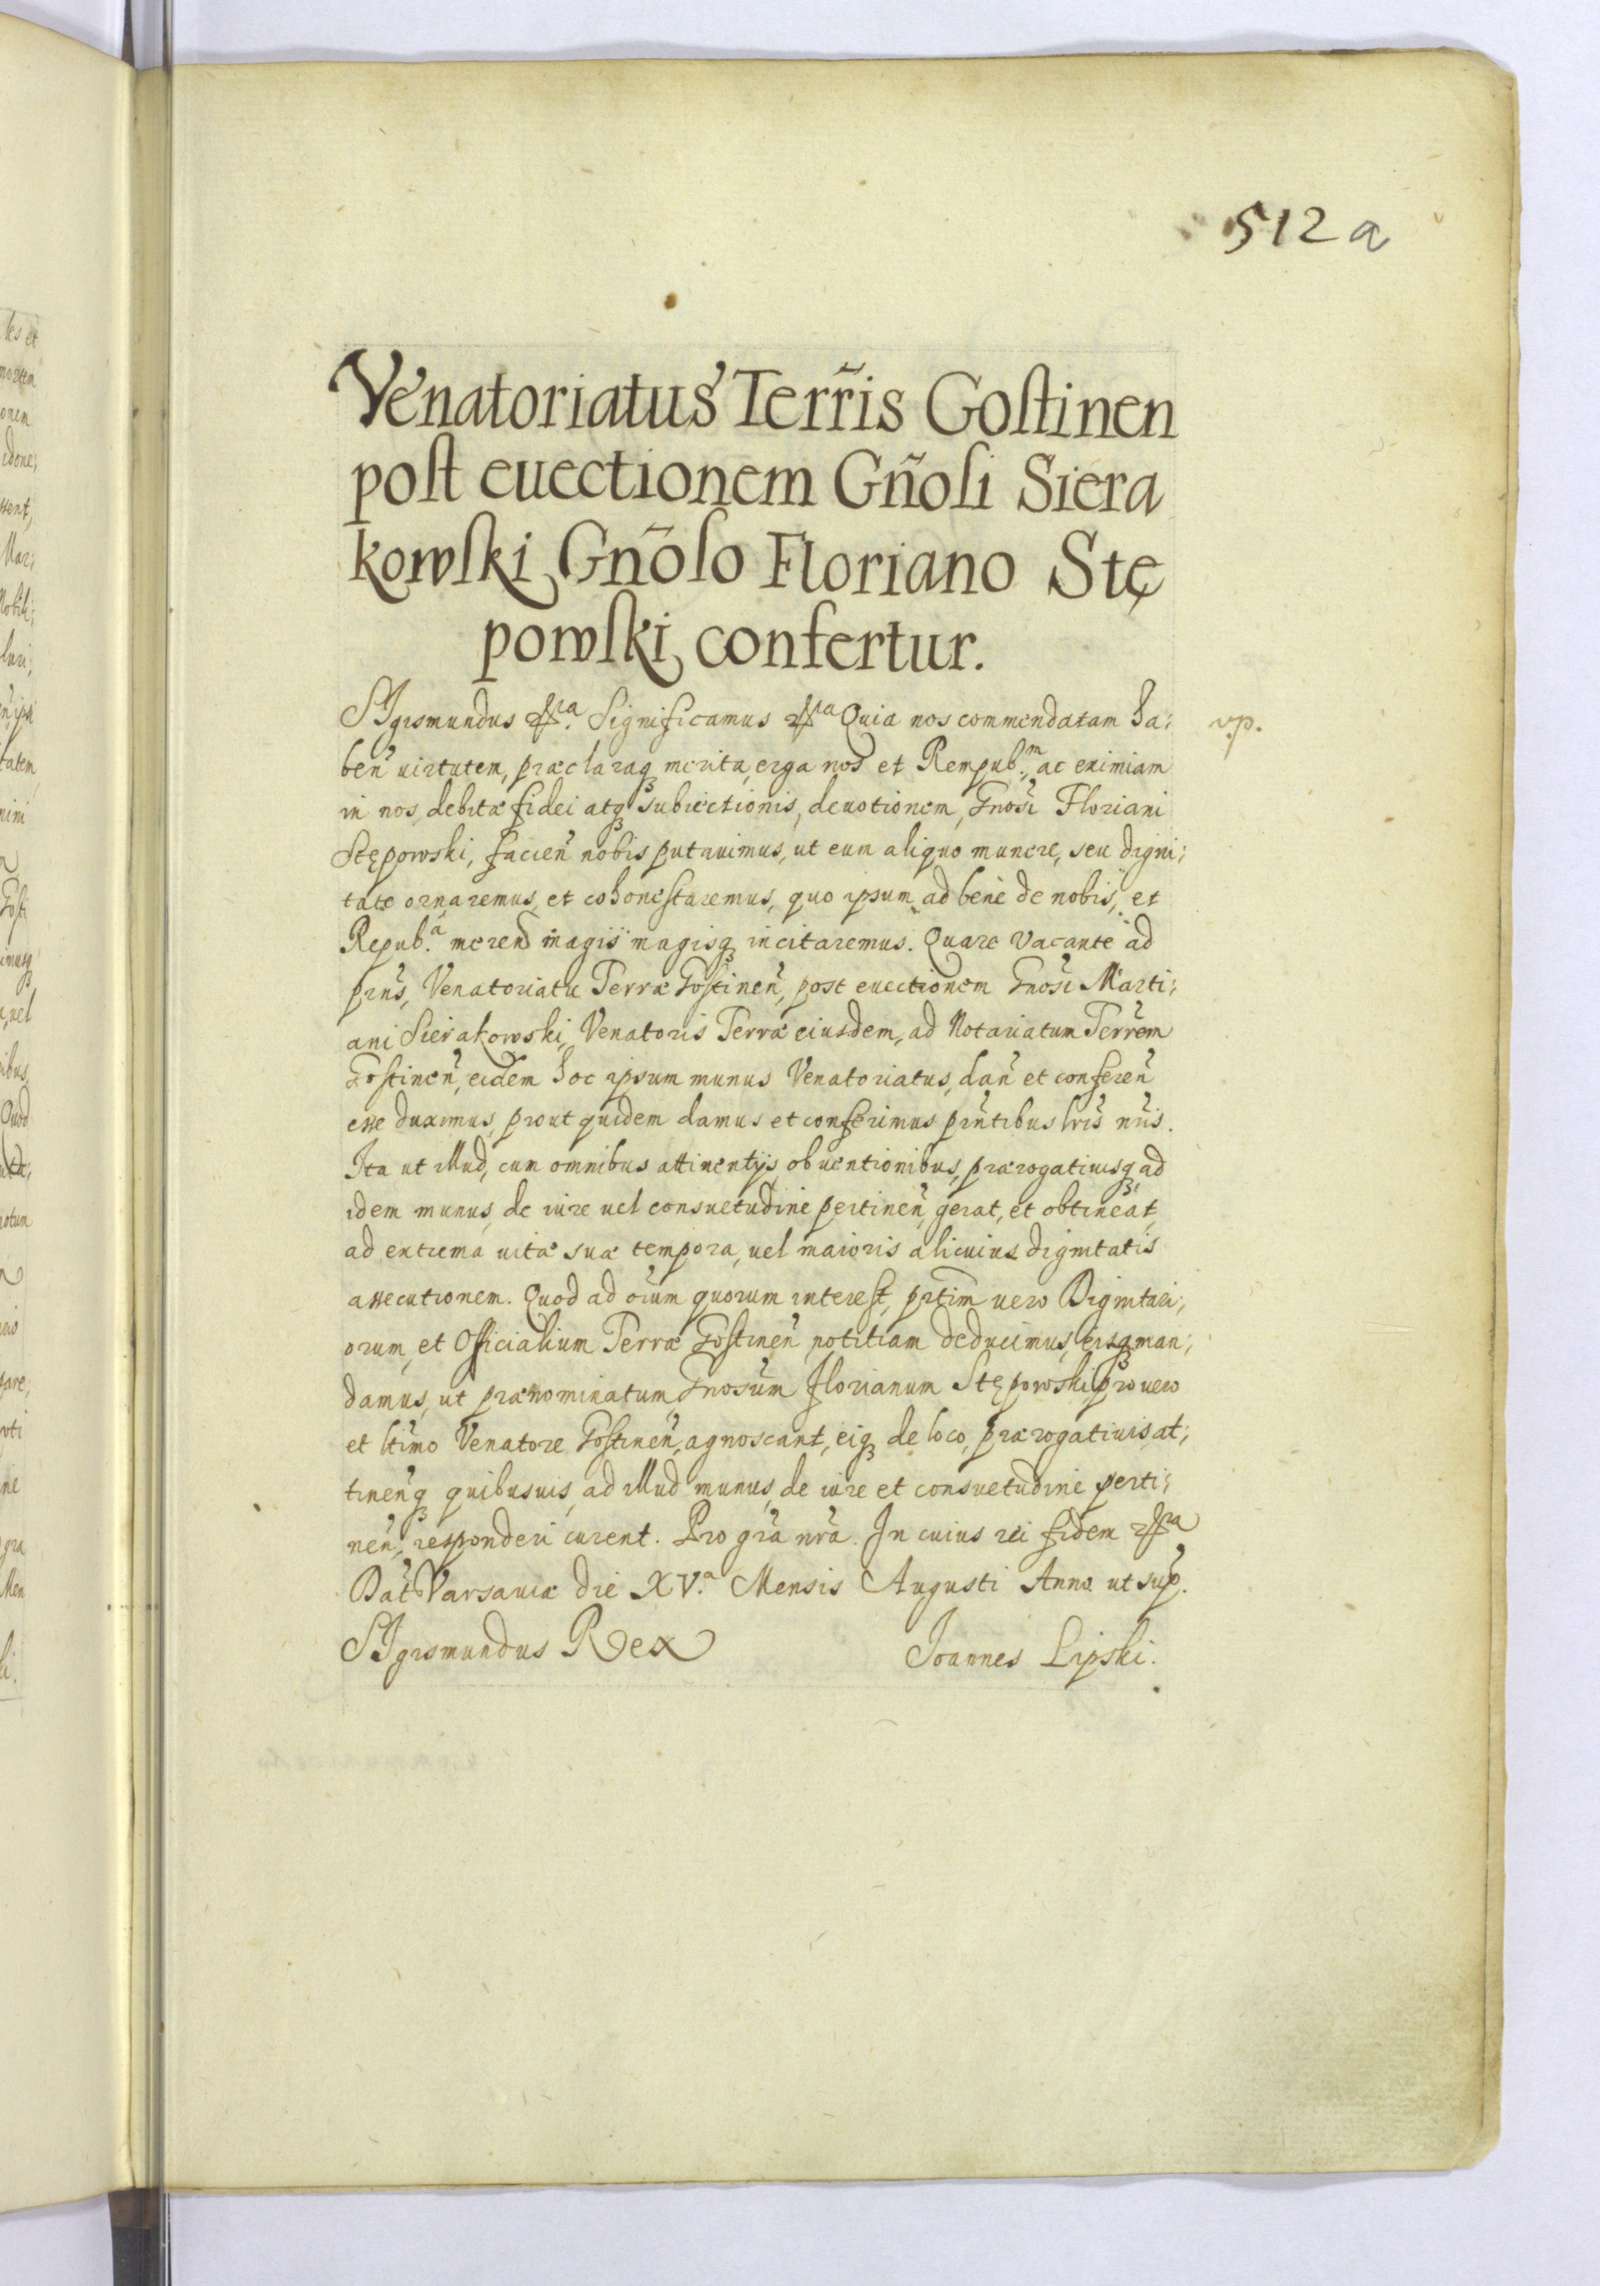 512a
Venatoriatus Terr̃is Gostinen
post euectionem Gñosi Siera
kowski Gñoso Floriano Stę
powski confertur.
SIgismundus &ca. Significamus &ca Quia nos commendatam ha:
ben̄ uirtutem, præclaraq merita erga nos et Rempub.m, ac eximiam
in nos, debitæ fidei atq subiectionis, deuotionem, Gnosi Floriani
Stępowski, facien̄ nobis putauimus, ut eum aliquo munere, seu digni:
tate ornaremus, et cohonestaremus, quo ipsum ad bene de nobis, et
Repub.a meren̄d magis magisq incitaremus. Quare vacante ad
prn̄s, Venatoriatu Terræ Gostinen̄, post euectionem Gnosi Marti:
ani Sierakowski, Venatoris Terræ eiusdem, ad Notariatum Terrem̄
Gostinen̄, eidem hoc ipsum munus Venatoriatus, dan̄ et conferen̄
esse duximus, prout quidem damus et conferimus prn̄tibus lris̄ nris̄.
Ita ut illud, cum omnibus attinentijs, obuentionibus, prærogatiuisq, ad
idem munus, de iure uel consuetudine pertinen̄, gerat, et obtineat,
ad extrema uitæ suæ tempora, uel maioris alicuius dignitatis
assecutionem. Quod ad oīum quorum interest, prtīm uero Dignitari:
orum, et Officialium Terræ Gostinen̄, notitiam deducimus, eisq man:
damus, ut prænominatum Gnosum Florianum Stępowski pro uero
et ltīmo Venatore Gostinen̄, agnoscant, eiq de loco, prærogatiuis, at:
tinen̄q quibusuis, ad illud munus, de iure et consuetudine perti:
nen̄, responderi curent. Pro grā nrā. In cuius rei fidem &ca
Dat̄ Varsauiæ die XV.a Mensis Augusti Anno ut sup.
SIgismundus Rex
Joannes Lipski.